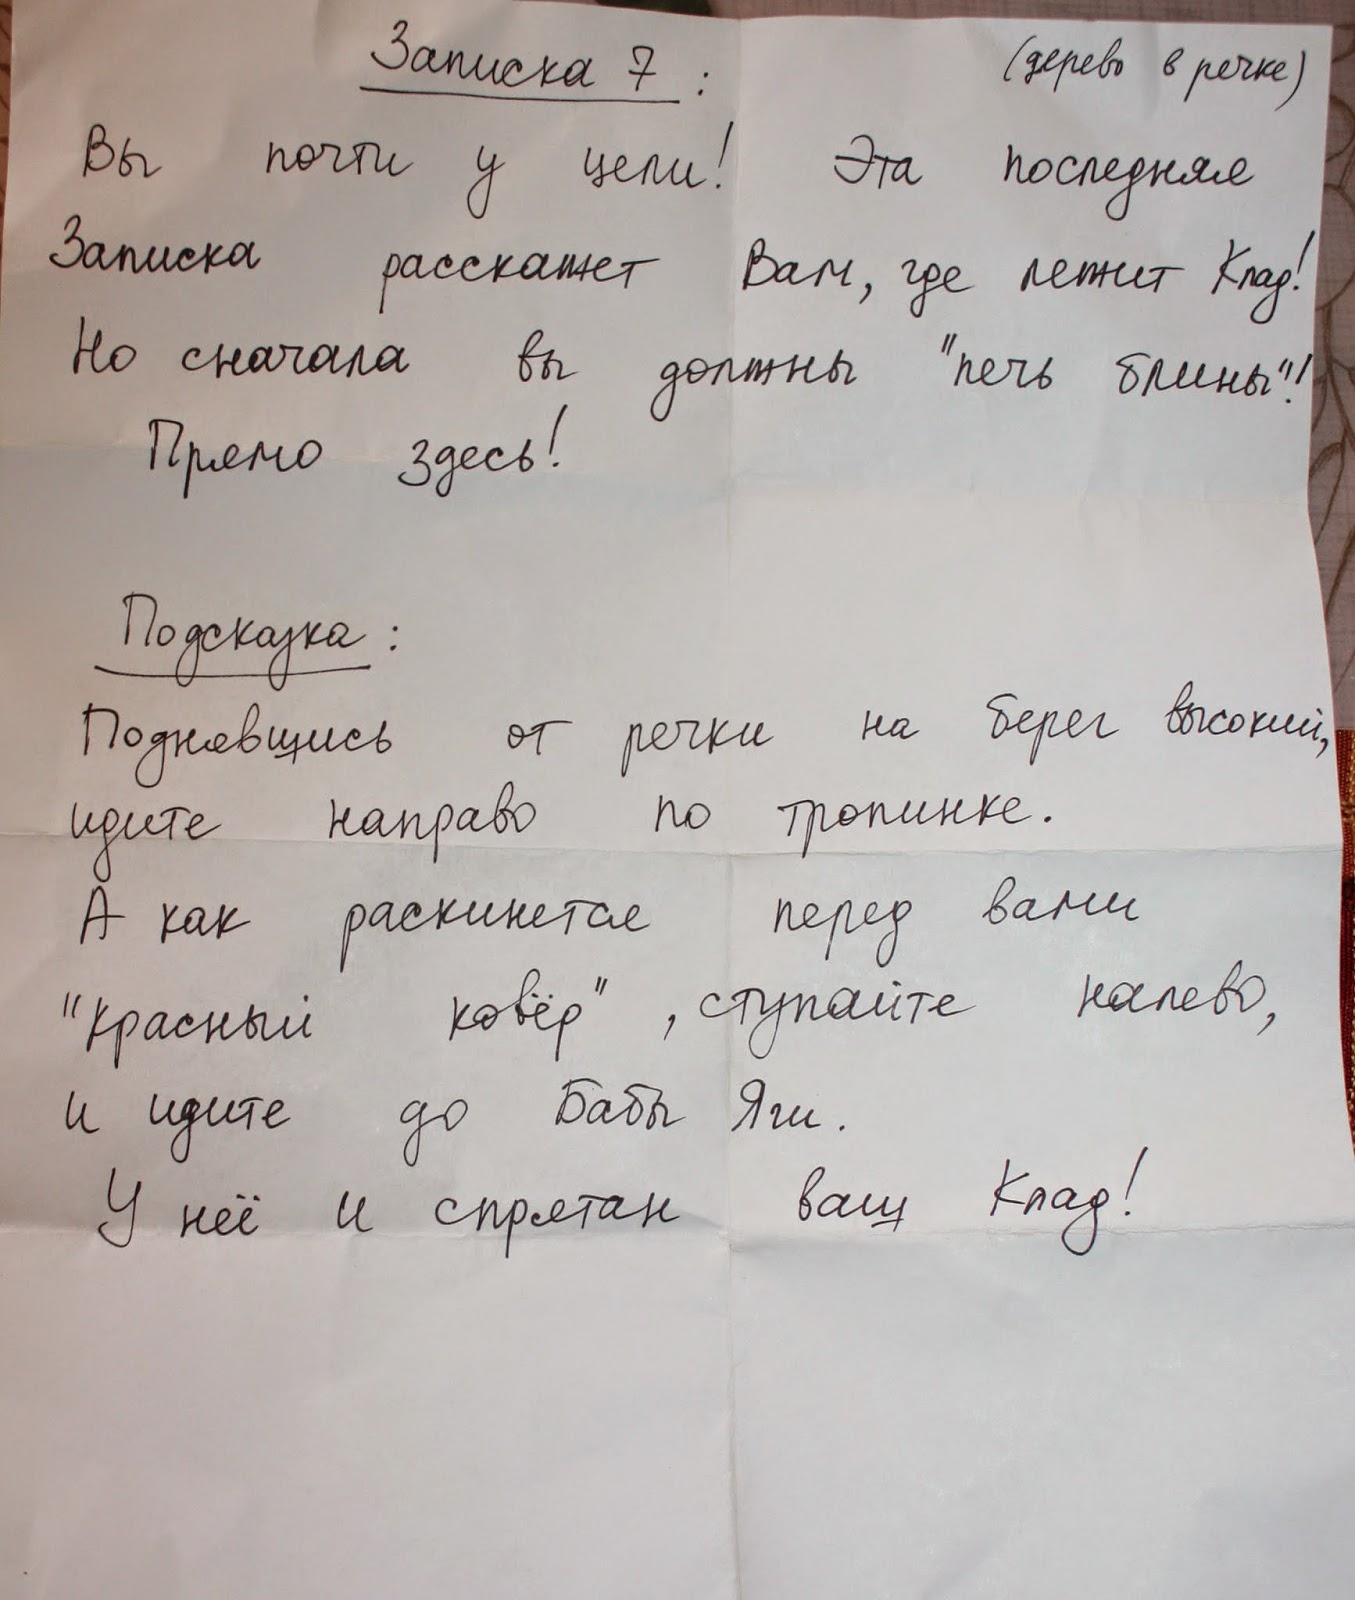 Записка 7 : (дерево в речке)
Вы почти у цели! Эта последняя
Записка расскажет Вам, где лежит Клад!
Но сначала вы должны "печь блины"!
Прямо здесь!
Подсказка :
Поднявшись от речки на берег высокий,
идите направо по тропинке.
А как раскинется перед вами
"красный ковёр", ступайте налево,
и идите до Бабы Яги.
У неё и спрятан ваш Клад!